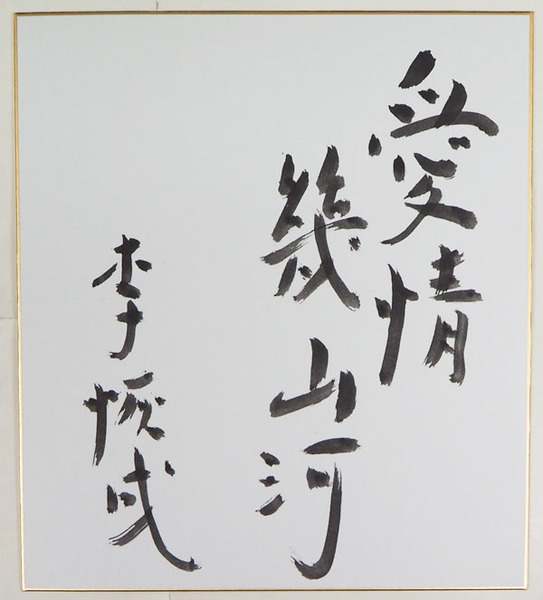 愛情
幾山河
李恢成